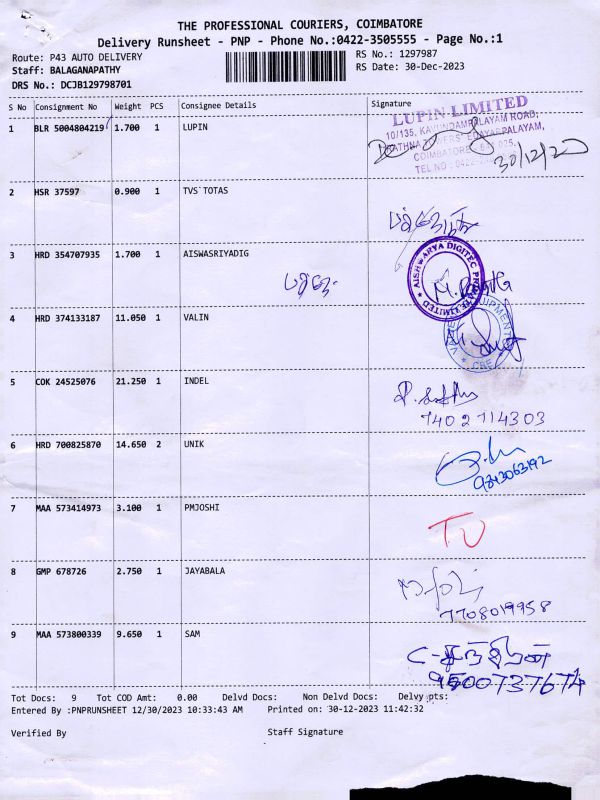 THE PROFESSIONAL COURIERS, COIMBATORE
Delivery Runsheet - PNP - Phone No.:0422-3505555 - Page No.:1
Route: P43 AUTO DELIVERY RS No.: 1297987
Staff: BALAGANAPATHY RS Date: 30-Dec-2023
DRS No.: DCJB129798701
S No Consignment No Weight PCS Consignee Details Signature
1 BLR 5004804219 1.700 1 LUPIN
LUPIN LIMITED
10/135, KAVUNDAMPALAYAM ROAD,
EDAYARPALAYAM,
COIMBATORE - 641 025.
TEL NO : 0422-
30/12/23
2 HSR 37597 0.900 1 TVS`TOTAS
3 HRD 354707935 1.700 1 AISWASRIYADIG
AISHWARYA DIGITEC PRIVATE LIMITED
4 HRD 374133187 11.050 1 VALIN
5 COK 24525076 21.250 1 INDEL
7402714303
6 HRD 700825870 14.650 2 UNIK
9843063192
7 MAA 573414973 3.100 1 PMJOSHI
8 GMP 678726 2.750 1 JAYABALA
7708019958
9 MAA 573800339 9.650 1 SAM
9500737674
Tot Docs: 9 Tot COD Amt: 0.00 Delvd Docs: Non Delvd Docs: Delvy pts:
Entered By :PNPRUNSHEET 12/30/2023 10:33:43 AM Printed on: 30-12-2023 11:42:32
Verified By Staff Signature